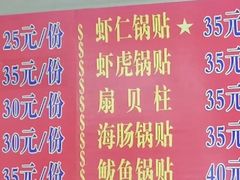 25元/份 $ 虾仁锅贴 ★ 35元
35元/份 $ 虾虎锅贴 35元
30元/份 $ 扇贝柱 35元
30元/份 $ 海肠锅贴 35元
35元/份 $ 鲅鱼锅贴 40元